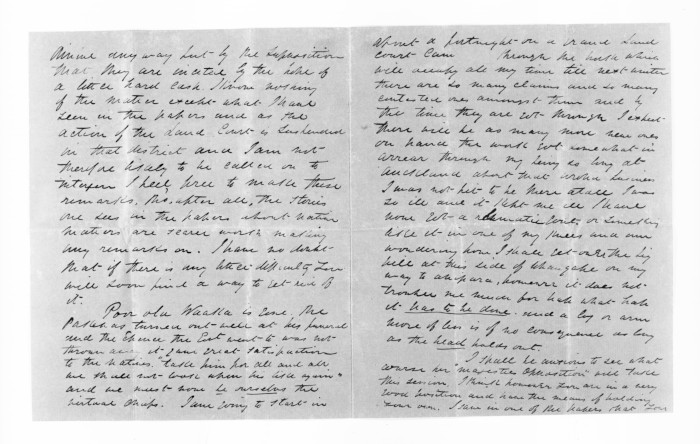 any way but by the supposition
that they are incited by the hope of
a little hard cash. I know nothing
of the matter except what I have
seen in the papers and as the
action of the Land Court is suspended
in that district and I am not
therefore likely to be called on to
interfere I feel free to make these
remarks, tho, after all, the stories
one sees in the papers about native
matters are scarce worth making
any remarks on. I have no doubt
that if there is any little difficulty you
will soon find a way to get rid of
it.
Poor old Waaka is gone, the
turned out well at his funeral
and the expense the Govt went to was not
thrown away it gave great satisfaction
to the natives, "take him for all and all
we shall not look upon his like again"
and we must now be ourselves the
virtual chaps. I am going to start in
about a fortnight on a grand Land
Court Cam through the North which
will occupy all my time till next winter
there are so many claims and so many
contested ones amongst them and by
the time they are got through I expect
there will be as many more new ones
on hand the work got somewhat in
arrear through my being so long at
Auckland about that business
I was not fit to be there at all I was
so ill and it kept me ill I have
now got a rheumatic gout, or something
like it in one of my knees and am
wondering how I shall get over the big
hill at this side of Whangape on my
way to Ahipara, however it does not
trouble me much for
it has to be done. and a leg or arm
more or less is of no consequence as long
as the head holds out.
I shall be anxious to see what
"Majesties Opposition" will take
this session. I think however you are in a very
good position and have the means of holding
your own. I saw in one of the papers that you